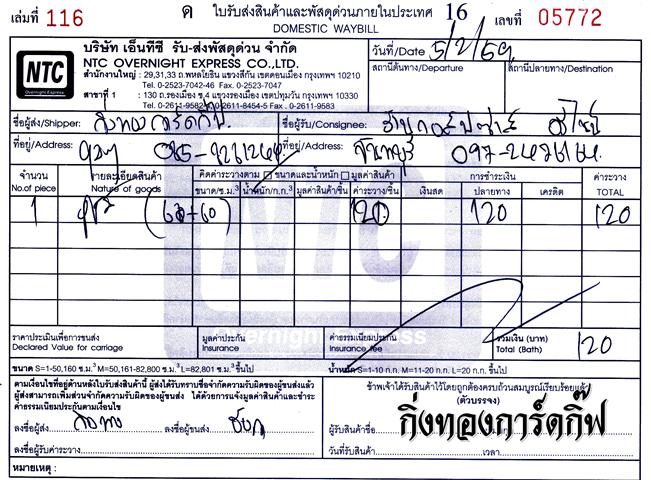 เล่มที่ 116 ด ใบรับส่งสินค้าและพัสดุด่วนภายในประเทศ 16 เลขที่ 05772
DOMESTIC WAYBILL
NTC
Overnight Express
บริษัท เอ็นทีซี รับ-ส่งพัสดุด่วน จำกัด
NTC OVERNIGHT EXPRESS CO.,LTD.
สำนักงานใหญ่ : 29,31,33 ถ.พหลโยธิน แขวงสีกัน เขตดอนเมือง กรุงเทพฯ 10210
Tel. 0-2523-7042-46 Fax. 0-2523-7047
สาขาที่ 1 : 130 ถ.รองเมือง ซ.4 แขวงรองเมือง เขตปทุมวัน กรุงเทพฯ 10330
Tel. 0-2611-9582 0-2611-8454-5 Fax. 0-2611-9583
วันที่/Date 5/2/59
สถานีต้นทาง/Departure สถานีปลายทาง/Destination
ชื่อผู้ส่ง/Shipper: กิ่งทองการ์ดกิ๊ฟ ชื่อผู้รับ/Consignee:
ที่อยู่/Address: ที่อยู่/Address: จันทบุรี
จำนวน รายละเอียดสินค้า คิดค่าระวางตาม ขนาดและน้ำหนัก มูลค่าสินค้า การชำระเงิน ค่าระวาง
No.of piece Nature of goods ขนาด/ซ.ม.³ น้ำหนัก/ก.ก.³ มูลค่าสินค้า/ชิ้น ค่าระวาง/ชิ้น เงินสด ปลายทาง เครดิต TOTAL
1 (60+60) 120 120 120
NTC
Overnight Express
ราคาประเมินเพื่อการขนส่ง มูลค่าประกัน ค่าธรรมเนียมประกัน รวมเงิน (บาท) 120
Declared Value for carriage Insurance Insurance Fee Total (Bath)
ขนาด S=1-50,160 ซ.ม.³ M=50,161-82,800 ซ.ม.³ L=82,801 ซ.ม.³ ขึ้นไป น้ำหนัก S=1-10 ก.ก. M=11-20 ก.ก. L=20 ก.ก. ขึ้นไป
ตามเงื่อนไขที่อยู่ด้านหลังใบรับส่งสินค้านี้ ผู้ส่งได้รับทราบข้อจำกัดความรับผิดของผู้ขนส่งแล้ว
ผู้ส่งสามารถเพิ่มส่วนจำกัดความรับผิดของผู้ขนส่ง ได้ด้วยการแจ้งมูลค่าสินค้าและชำระ
ค่าธรรมเนียมประกันตามเงื่อนไข
ข้าพเจ้าได้รับสินค้าไว้โดยถูกต้องครบถ้วนสมบูรณ์เรียบร้อยแล้ว
(ตัวบรรจง)
ลงชื่อผู้ส่ง ลงชื่อผู้ขนส่ง
ผู้รับสินค้าชื่อ
กิ่งทองการ์ดกิ๊ฟ
ลงชื่อผู้รับค่าระวาง
วันที่รับสินค้า เวลา
หมายเหตุ :